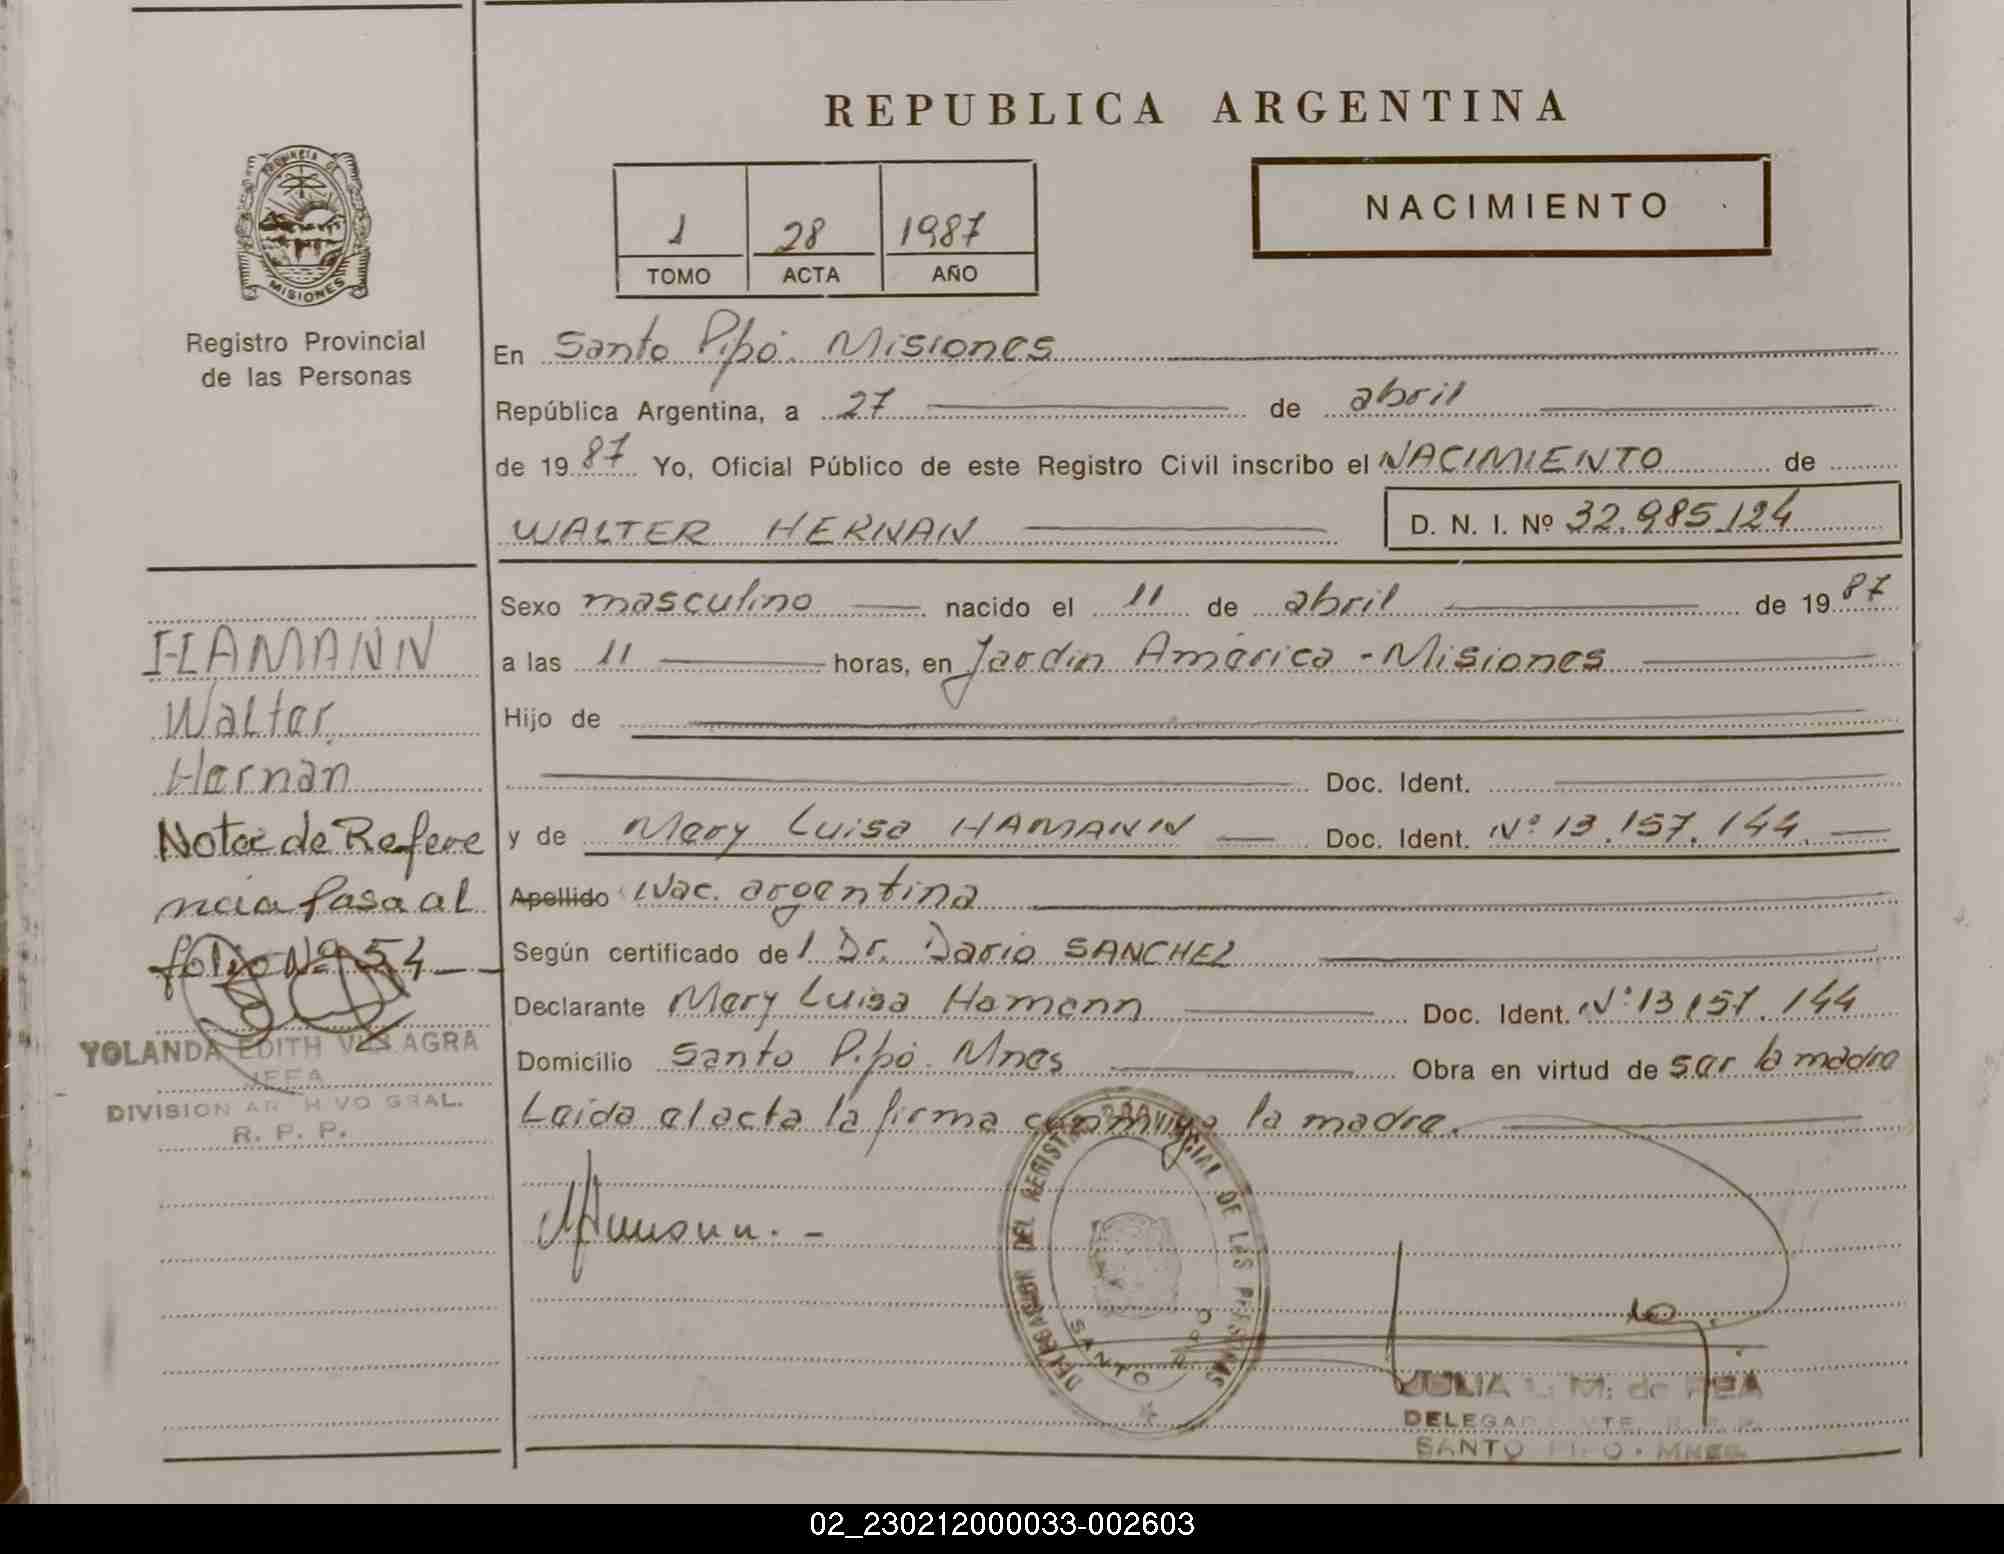 REPUBLICA ARGENTINA
PROVINCIA DE
MISIONES
Registro Provincial
de las Personas
1 28 1987
TOMO ACTA AÑO
NACIMIENTO
En Santo Pipó. Misiones
República Argentina, a 27 de abril
de 1987 Yo, Oficial Público de este Registro Civil inscribo el NACIMIENTO de
WALTER HERNAN D. N. I. Nº 32.985.124
Sexo masculino nacido el 11 de abril de 1987
a las 11 horas, en Jardín América - Misiones
Hijo de
Doc. Ident.
y de Mary Luisa HAMANN Doc. Ident. Nº 13.157.144
Apellido Nac. argentina
Según certificado de l Dr. Dario SANCHEZ
Declarante Mary Luisa Hamann Doc. Ident. Nº 13.157.144
Domicilio Santo Pipó. Mnes Obra en virtud de ser la madre
Leida el acta la firma conmigo la madre.
HAMANN
Walter
Hernán
Nota de Refere
ncia Pasa al
folio Nº 54
YOLANDA EDITH VILLAGRA
JEFA
DIVISION ARCHIVO GRAL.
R. P. P.
MHamann. -
DELEGACION DEL REGISTRO PROVINCIAL DE LAS PERSONAS
SANTO PIPO
JULIA L. M. de PEA
DELEGADA
SANTO PIPO - MNES.
02_230212000033-002603